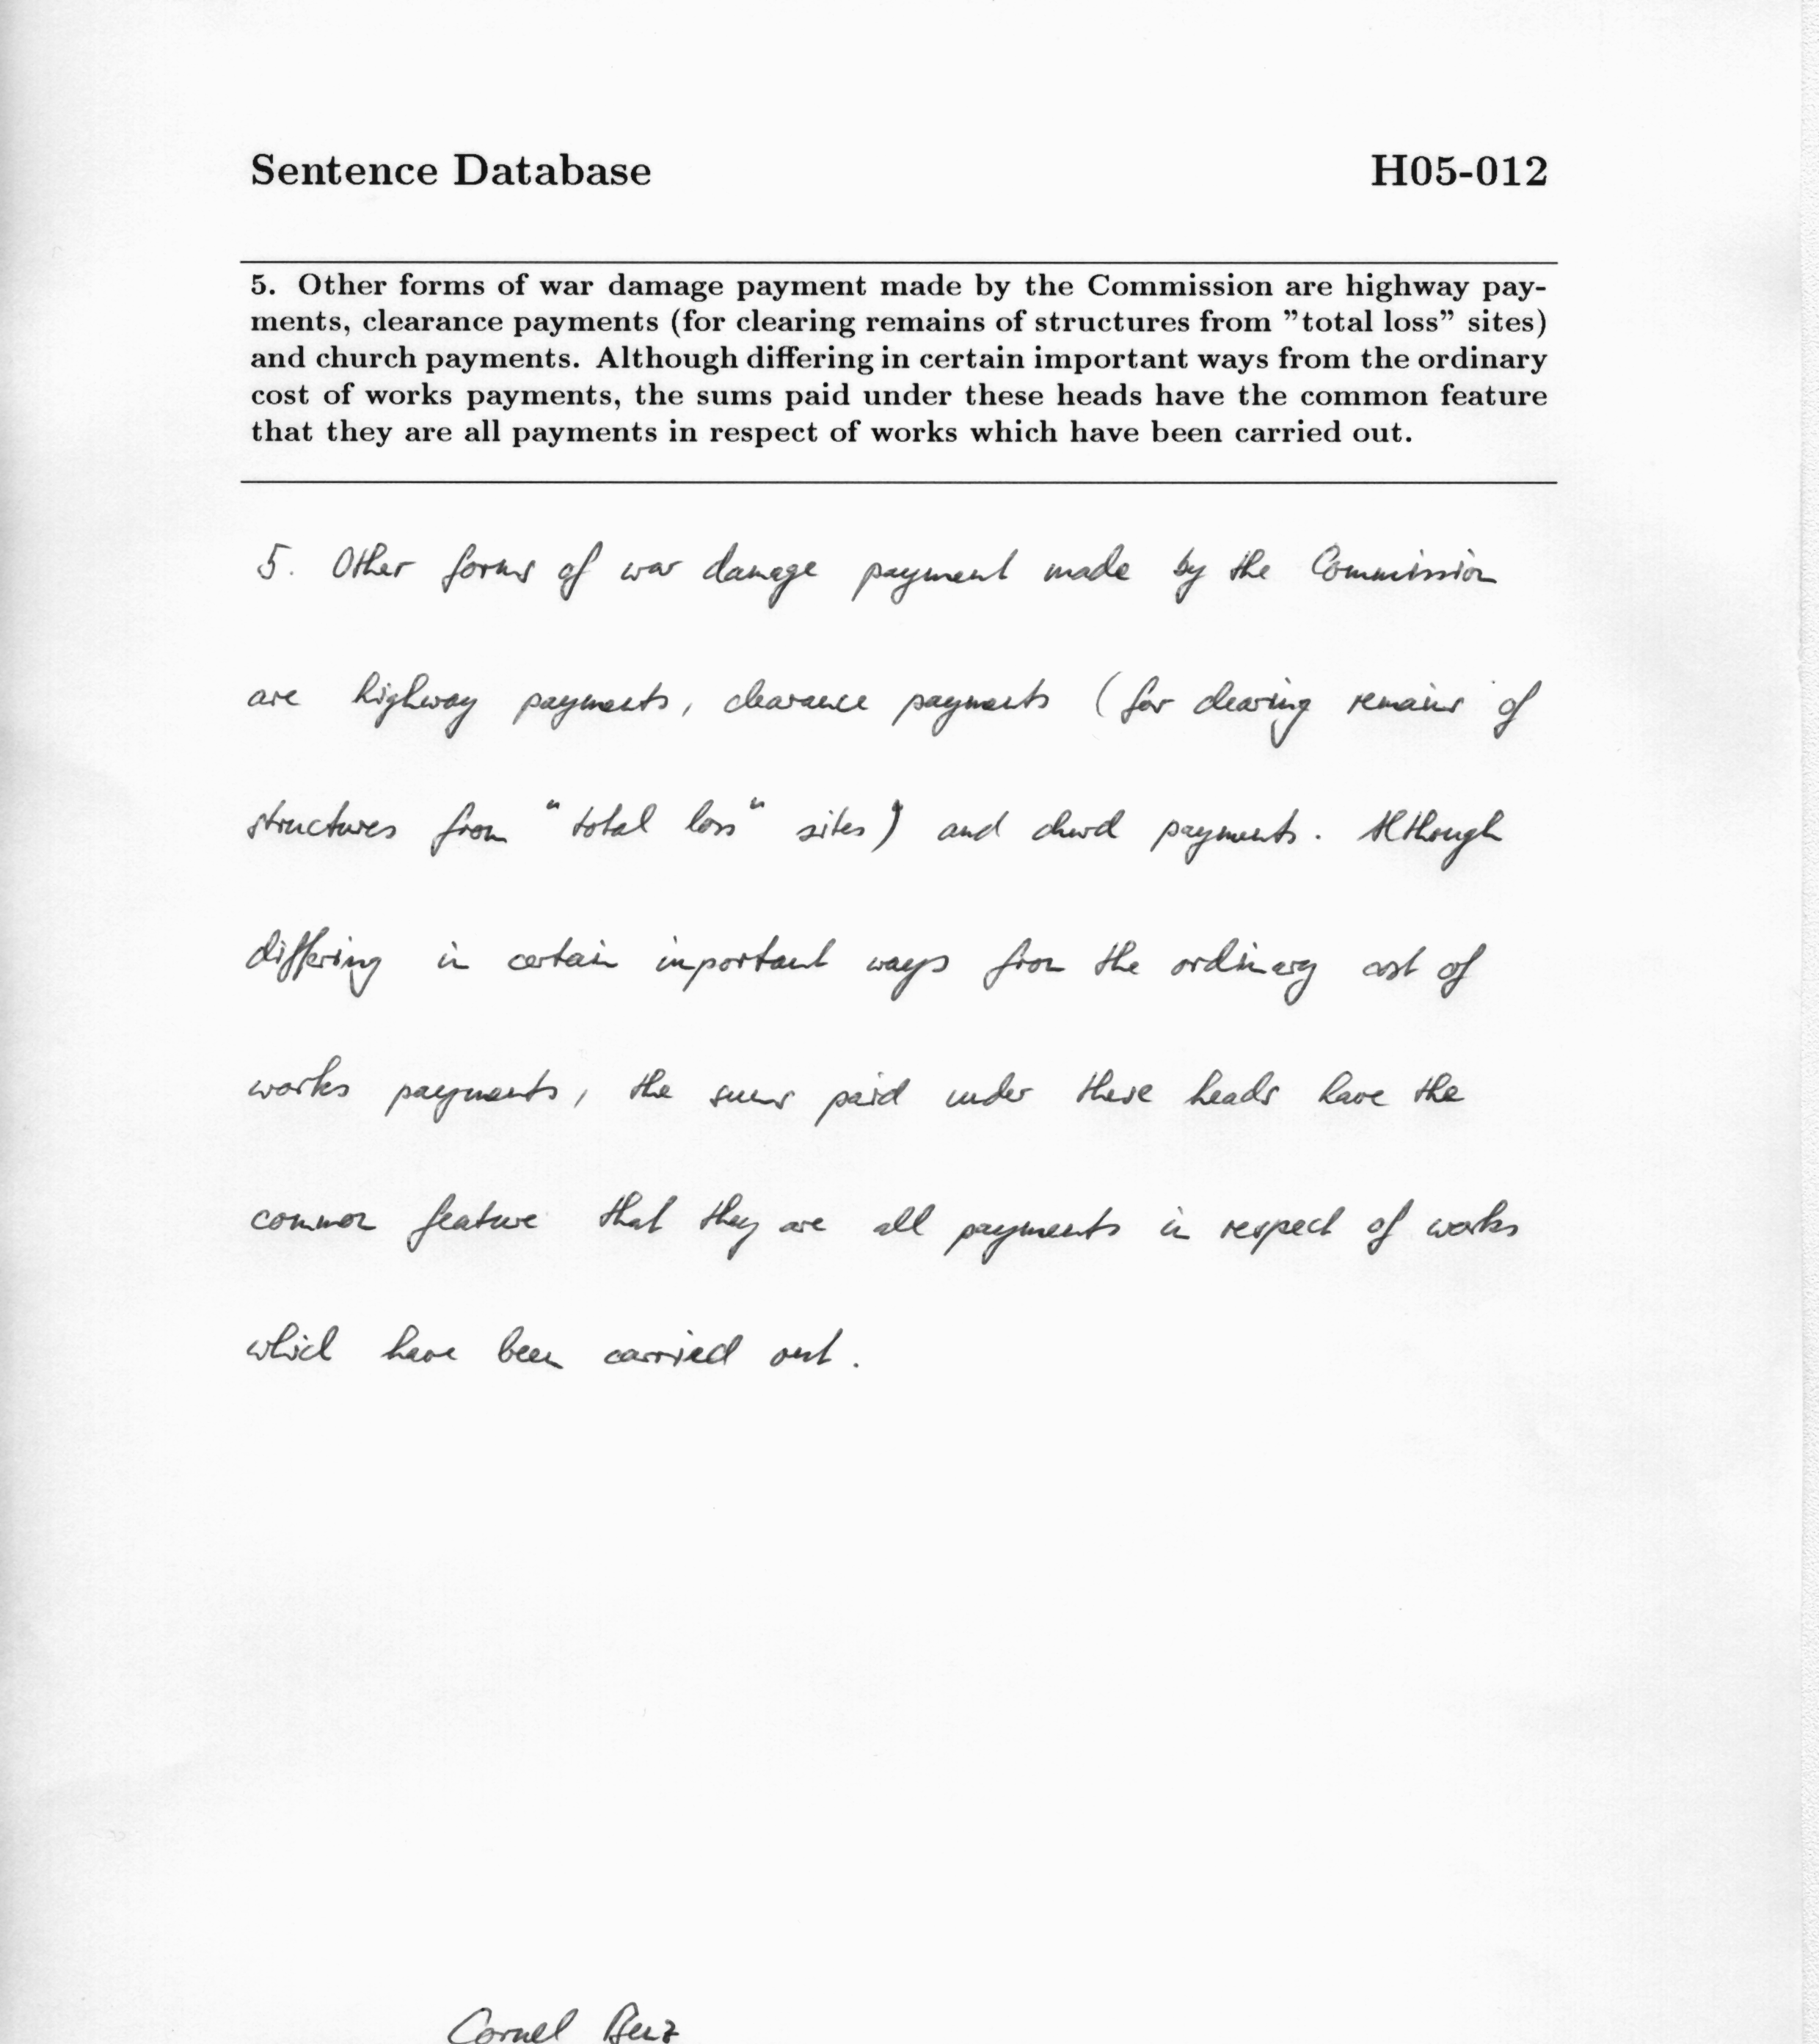 Sentence Database H05-012
5. Other forms of war damage payment made by the Commission are highway pay-
ments, clearance payments (for clearing remains of structures from ”total loss” sites)
and church payments. Although differing in certain important ways from the ordinary
cost of works payments, the sums paid under these heads have the common feature
that they are all payments in respect of works which have been carried out.
5. Other forms of war damage payment made by the Commission
are highway payments, clearance payments (for clearing remains of
structures from "total loss" sites) and church payments. Although
differing in certain important ways from the ordinary cost of
works payments, the sums paid under these heads have the
common feature that they are all payments in respect of works
which have been carried out.
Cornel